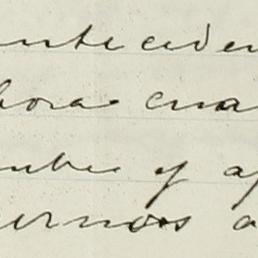 anteceden
bora cua
umbre y a
ernos a